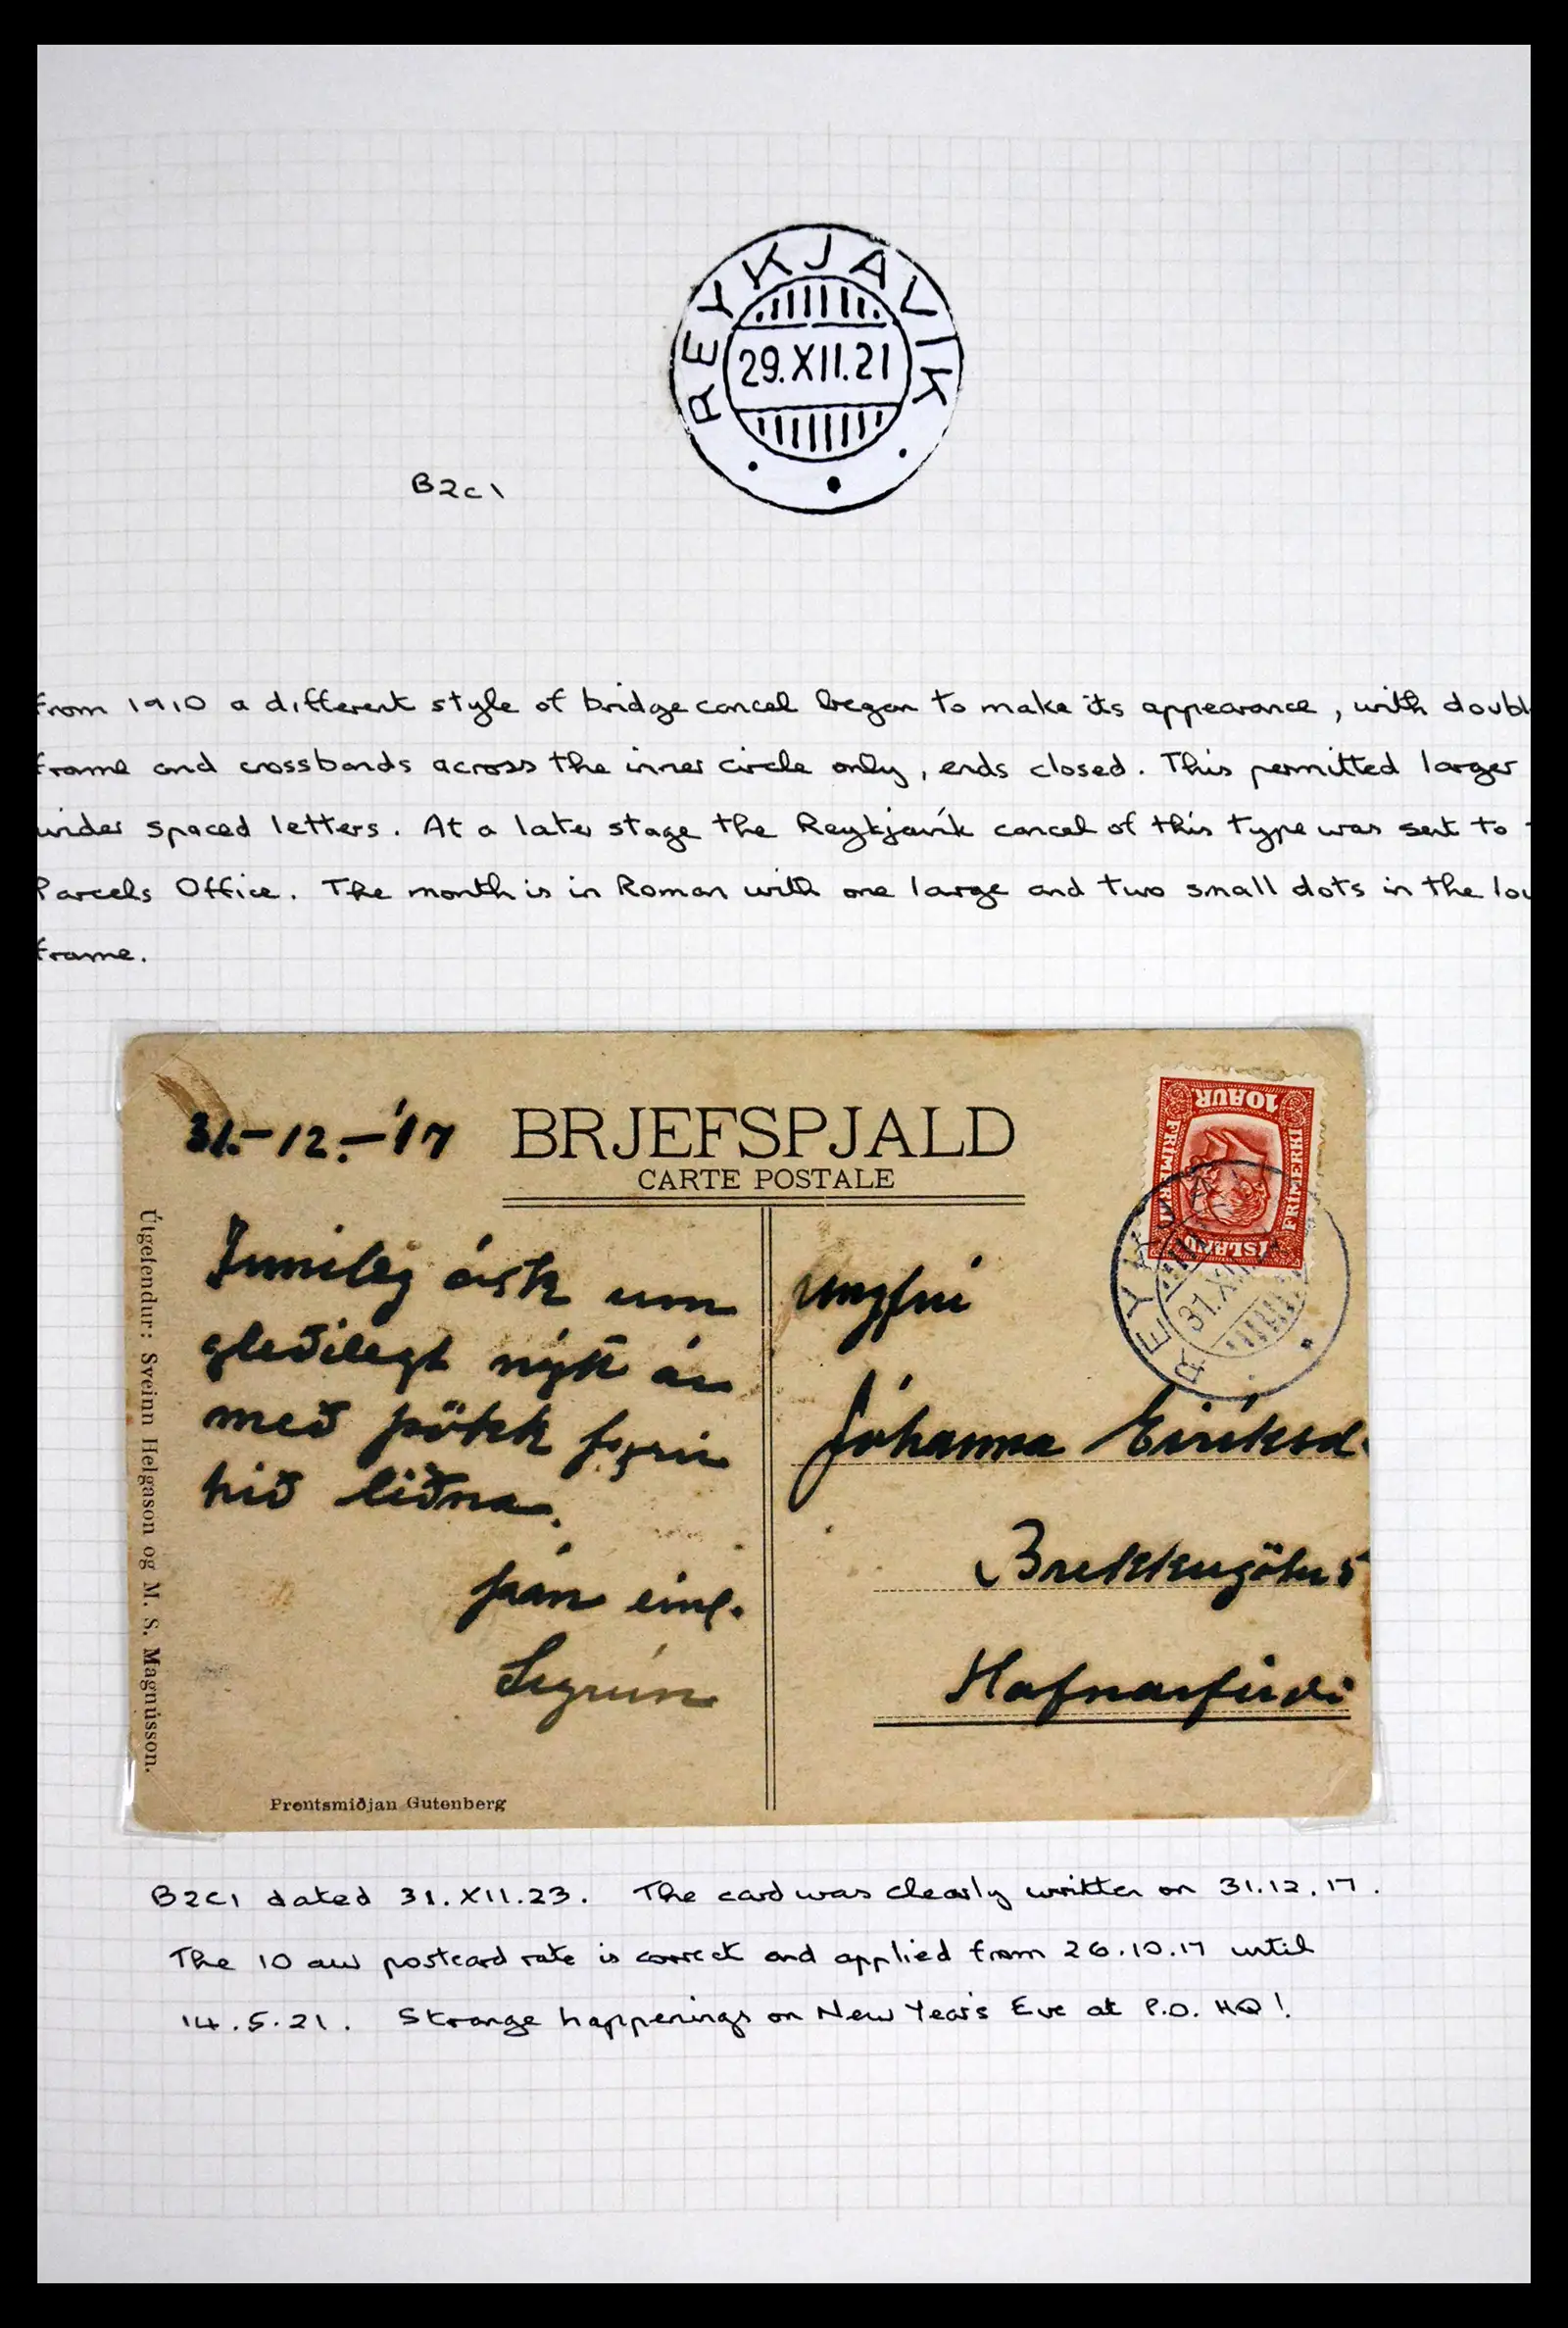 REYKJAVIK
29.XII.21
B2c1
From 1910 a different style of bridge cancel began to make its appearance, with doubl
frame and crossbands across the inner circle only, ends closed. This permitted larger
wider spaced letters. At a later stage the Reykjavík cancel of this type was sent to
Parcels Office. The month is in Roman with one large and two small dots in the lo
frame.
31.-12.-'17
BRJEFSPJALD
CARTE POSTALE
10 AUR
FRIMERKI
FRIMERKI
ISLAND
REYKJ
31.XI
Útgefendur: Sveinn Helgason og M. S. Magnússon.
Innileg ósk um
gleðilegt nýtt ár
með þökk fyrir
hið liðna.
þín einl.
Sigrún
Ungfrú
Jóhanna Eiríksd.
Brekkugötu 5
Hafnarfirði
Prentsmiðjan Gutenberg
B2c1 dated 31.XII.23. The card was clearly written on 31.12.17.
The 10 aur postcard rate is correct and applied from 26.10.17 until
14.5.21. Strange happenings on New Year's Eve at P.O. HQ!